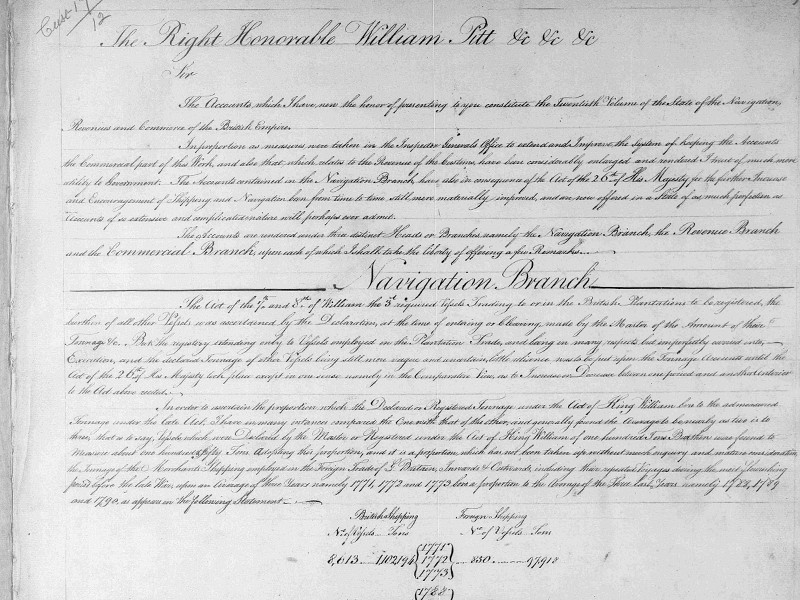 Cust 17/12
The Right Honorable William Pitt &c &c &c
Sir
The Accounts which I have now the honor of presenting to you constitute the Twentieth Volume of the State of the Navigation,
Revenues and Commerce of the British Empire.
In proportion as measures were taken in the Inspector Generals Office to extend and Improve the System of keeping the Accounts
the Commercial part of this Work, and also that which relates to the Revenue of the Customs, have been considerably enlarged and rendered I trust of much more
utility to Government. The Accounts contained in the Navigation Branch, have also in consequence of the Act of the 26th of His Majesty for the further Increase
and Encouragement of Shipping and Navigation been from time to time still more materially improved, and are now offered in a State of as much perfection as
Accounts of so extensive and complicated a nature will perhaps ever admit.
The Accounts are rendered under three distinct Heads or Branches, namely the Navigation Branch, the Revenue Branch
and the Commercial Branch, upon each of which I shall take the Liberty of offering a few Remarks.
Navigation Branch
The Act of the 7th and 8th of William the 3d required Vessels Trading to or in the British Plantations to be registered, the
burthen of all other Vessels was ascertained by the Declaration, at the time of entering or Clearing, made by the Master of the Amount of their
Tonnage &c. But the registry extending only to Vessels employed in the Plantation Trade, and being in many respects but imperfectly carried into
Execution, and the declared Tonnage of other Vessels being still more vague and uncertain, little reliance was to be put upon the Tonnage Accounts until the
Act of the 26th of His Majesty took place except in one sense namely in the Comparative View, as to Increase or Decrease between one period and another anterior
to the Act above recited.
In order to ascertain the proportion which the Declared or Registered Tonnage under the Act of King William bore to the admeasured
Tonnage under the late Act, I have in many instances compared the One with that of the other, and generally found the Average to be nearly as two is to
three, that is to say, Vessels which were Declared by the Master or Registered under the Act of King William of one hundred Tons Burthen was found to
Measure about one hundred & fifty Tons. Adopting this proportion, and it is a proportion which has not been taken up without much enquiry and mature consideration
the Tonnage of the Merchants Shipping employed in the Foreign Trade of G. Britain, Inwards & Outwards, including their repeated Voyages during the most flourishing
period before the late War, upon an Average of three Years namely 1771, 1772 and 1773 bore a proportion to the Average of the Three last Years namely 1788, 1789
and 1790, as appears in the following Statement
British Shipping Foreign Shipping
No. of Vessels Tons No. of Vessels Tons
8,613 1,102,194 {1771 1772 1773} 830 97,918
{1788